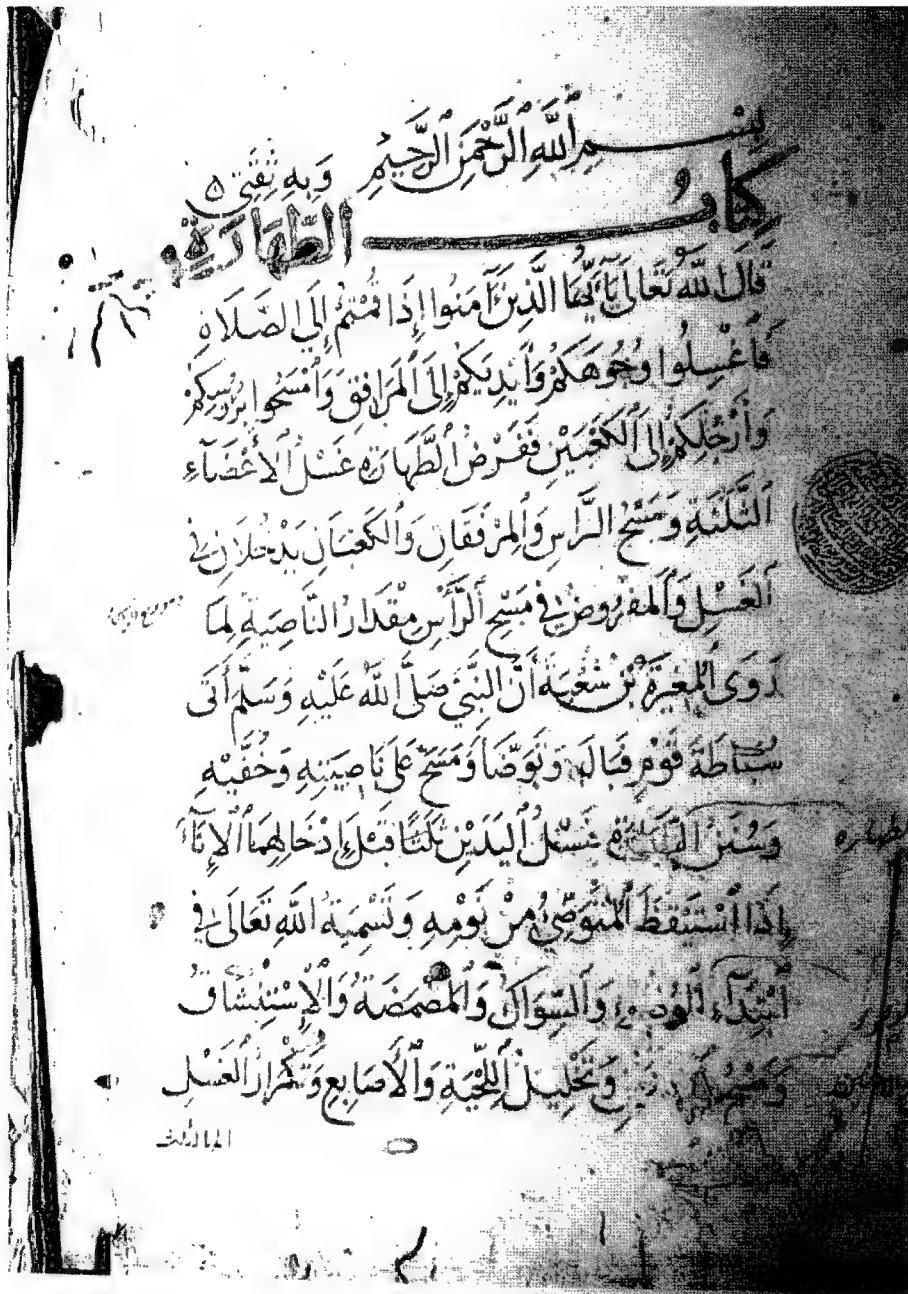 بِسْمِ اللَّهِ الرَّحْمَنِ الرَّحِيمِ وَبِهِ ثِقَتِي
كِتَابُ الطَّهَارَةِ
قَالَ اللَّهُ تَعَالَى يَآأَيُّهَا الَّذِينَ آمَنُوا إِذَا قُمْتُمْ إِلَى الصَّلَاةِ
فَاغْسِلُوا وُجُوهَكُمْ وَأَيْدِيَكُمْ إِلَى الْمَرَافِقِ وَامْسَحُوا بِرُؤُسِكُمْ
وَأَرْجُلِكُمْ إِلَى الْكَعْبَيْنِ فَفَرْضُ الطَّهَارَةِ غَسْلُ الْأَعْضَآءِ
الثَّلَثَةِ وَمَسْحُ الرَّاسِ وَالْمِرْفَقَانِ وَالْكَعْبَانِ يَدْخُلَانِ فِي
الْغَسْلِ وَالْمَفْرُوضُ فِي مَسْحِ الرَّأْسِ مِقْدَارُ النَّاصِيَةِ لِمَا
رَوَى الْمُغِيرَةُ بْنُ شُعْبَةَ أَنَّ النَّبِيَّ صَلَّى اللَّهُ عَلَيْهِ وَسَلَّمَ أَتَى
سُبَاطَةَ قَوْمٍ فَبَالَ وَتَوَضَّأَ وَمَسَحَ عَلَى نَاصِيَتِهِ وَخُفَّيْهِ
وَسُنَنُ الطَّهَارَةِ غَسْلُ الْيَدَيْنِ ثَلَثًا قَبْلَ إِدْخَالِهِمَا الْإِنَآءَ
الطهاره
إِذَا اسْتَيْقَظَ الْمُتَوَضِّئُ مِنْ نَوْمِهِ وَتَسْمِيَةُ اللَّهِ تَعَالَى فِي
ابْتِدَآءِ الْوُضُوءِ وَالسِّوَاكُ وَالْمَضْمَضَةُ وَالْاِسْتِنْشَاقُ
وَمَسْحُ الْأُذُنَيْنِ وَتَخْلِيلُ اللِّحْيَةِ وَالْأَصَابِعِ وَتَكْرَارُ الْغَسْلِ
الى الثلث